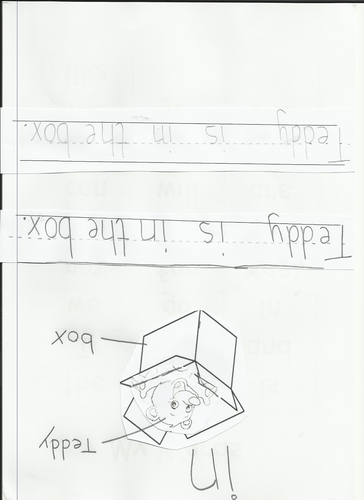 in
Teddy
box
Teddy is in the box.
Teddy is in the box.